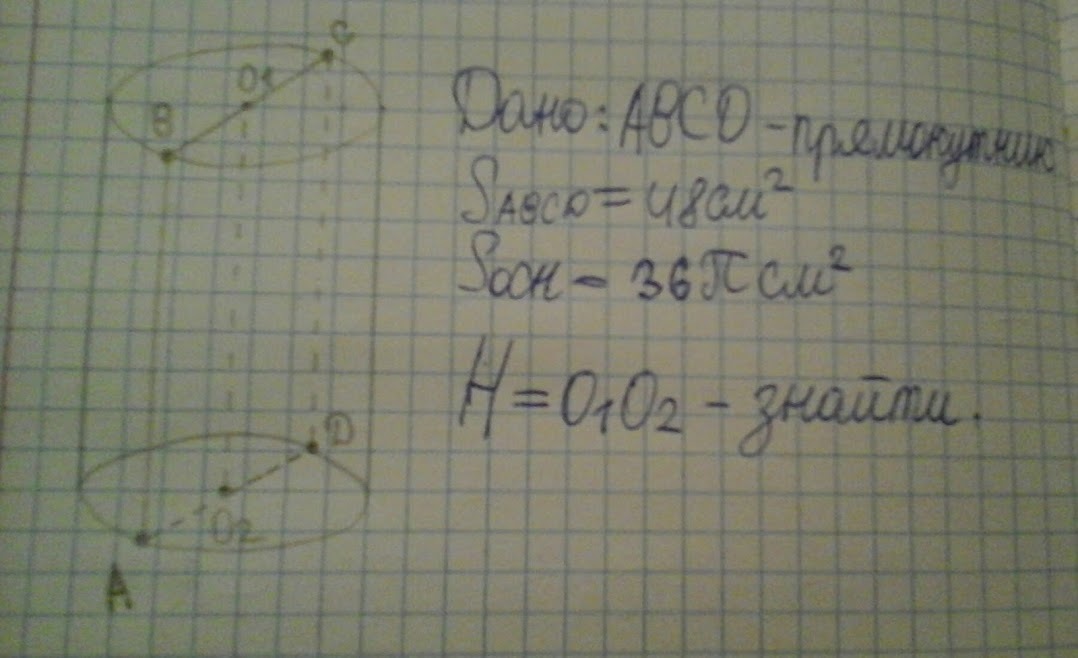 C
O1
B
Дано: ABCD - прямокутник
SABCD = 48см²
Sосн - 36π см²
H = O1O2 - знайти.
D
O2
A